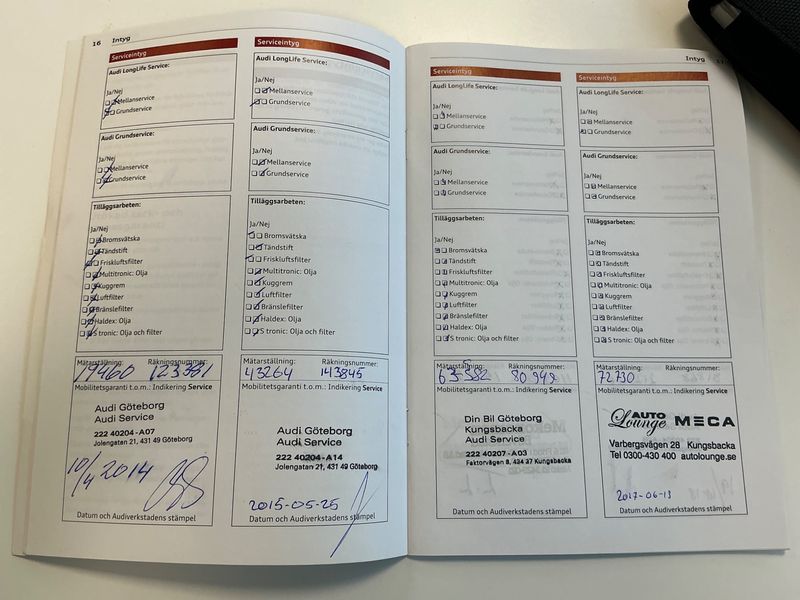 16 Intyg
Serviceintyg
Audi LongLife Service:
Ja/Nej
Mellanservice
Grundservice
Audi Grundservice:
Ja/Nej
Mellanservice
Grundservice
Tilläggsarbeten:
Ja/Nej
Bromsvätska
Tändstift
Friskluftsfilter
Multitronic: Olja
Kuggrem
Luftfilter
Bränslefilter
Haldex: Olja
S tronic: Olja och filter
Mätarställning: Räkningsnummer:
19460 123381
Mobilitetsgaranti t.o.m.: Indikering Service
Audi Göteborg
Audi Service
222 40204-A07
Jolengatan 21, 431 49 Göteborg
10/4 2014
Datum och Audiverkstadens stämpel
Serviceintyg
Audi LongLife Service:
Ja/Nej
Mellanservice
Grundservice
Audi Grundservice:
Ja/Nej
Mellanservice
Grundservice
Tilläggsarbeten:
Ja/Nej
Bromsvätska
Tändstift
Friskluftsfilter
Multitronic: Olja
Kuggrem
Luftfilter
Bränslefilter
Haldex: Olja
S tronic: Olja och filter
Mätarställning: Räkningsnummer:
43264 143845
Mobilitetsgaranti t.o.m.: Indikering Service
Audi Göteborg
Audi Service
222 40204-A14
Jolengatan 21, 431 49 Göteborg
2015-05-25
Datum och Audiverkstadens stämpel
Intyg 17
Serviceintyg
Audi LongLife Service:
Ja/Nej
Mellanservice
Grundservice
Audi Grundservice:
Ja/Nej
Mellanservice
Grundservice
Tilläggsarbeten:
Ja/Nej
Bromsvätska
Tändstift
Friskluftsfilter
Multitronic: Olja
Kuggrem
Luftfilter
Bränslefilter
Haldex: Olja
S tronic: Olja och filter
Mätarställning: Räkningsnummer:
80949
Mobilitetsgaranti t.o.m.: Indikering Service
Din Bil Göteborg
Kungsbacka
Audi Service
222 40207-A03
Faktorvägen 8, 434 37 Kungsbacka
Datum och Audiverkstadens stämpel
Serviceintyg
Audi LongLife Service:
Ja/Nej
Mellanservice
Grundservice
Audi Grundservice:
Ja/Nej
Mellanservice
Grundservice
Tilläggsarbeten:
Ja/Nej
Bromsvätska
Tändstift
Friskluftsfilter
Multitronic: Olja
Kuggrem
Luftfilter
Bränslefilter
Haldex: Olja
S tronic: Olja och filter
Mätarställning: Räkningsnummer:
72730
Mobilitetsgaranti t.o.m.: Indikering Service
AUTO Lounge MECA
Varbergsvägen 28 Kungsbacka
Tel 0300-430 400 autolounge.se
2017-06-13
Datum och Audiverkstadens stämpel